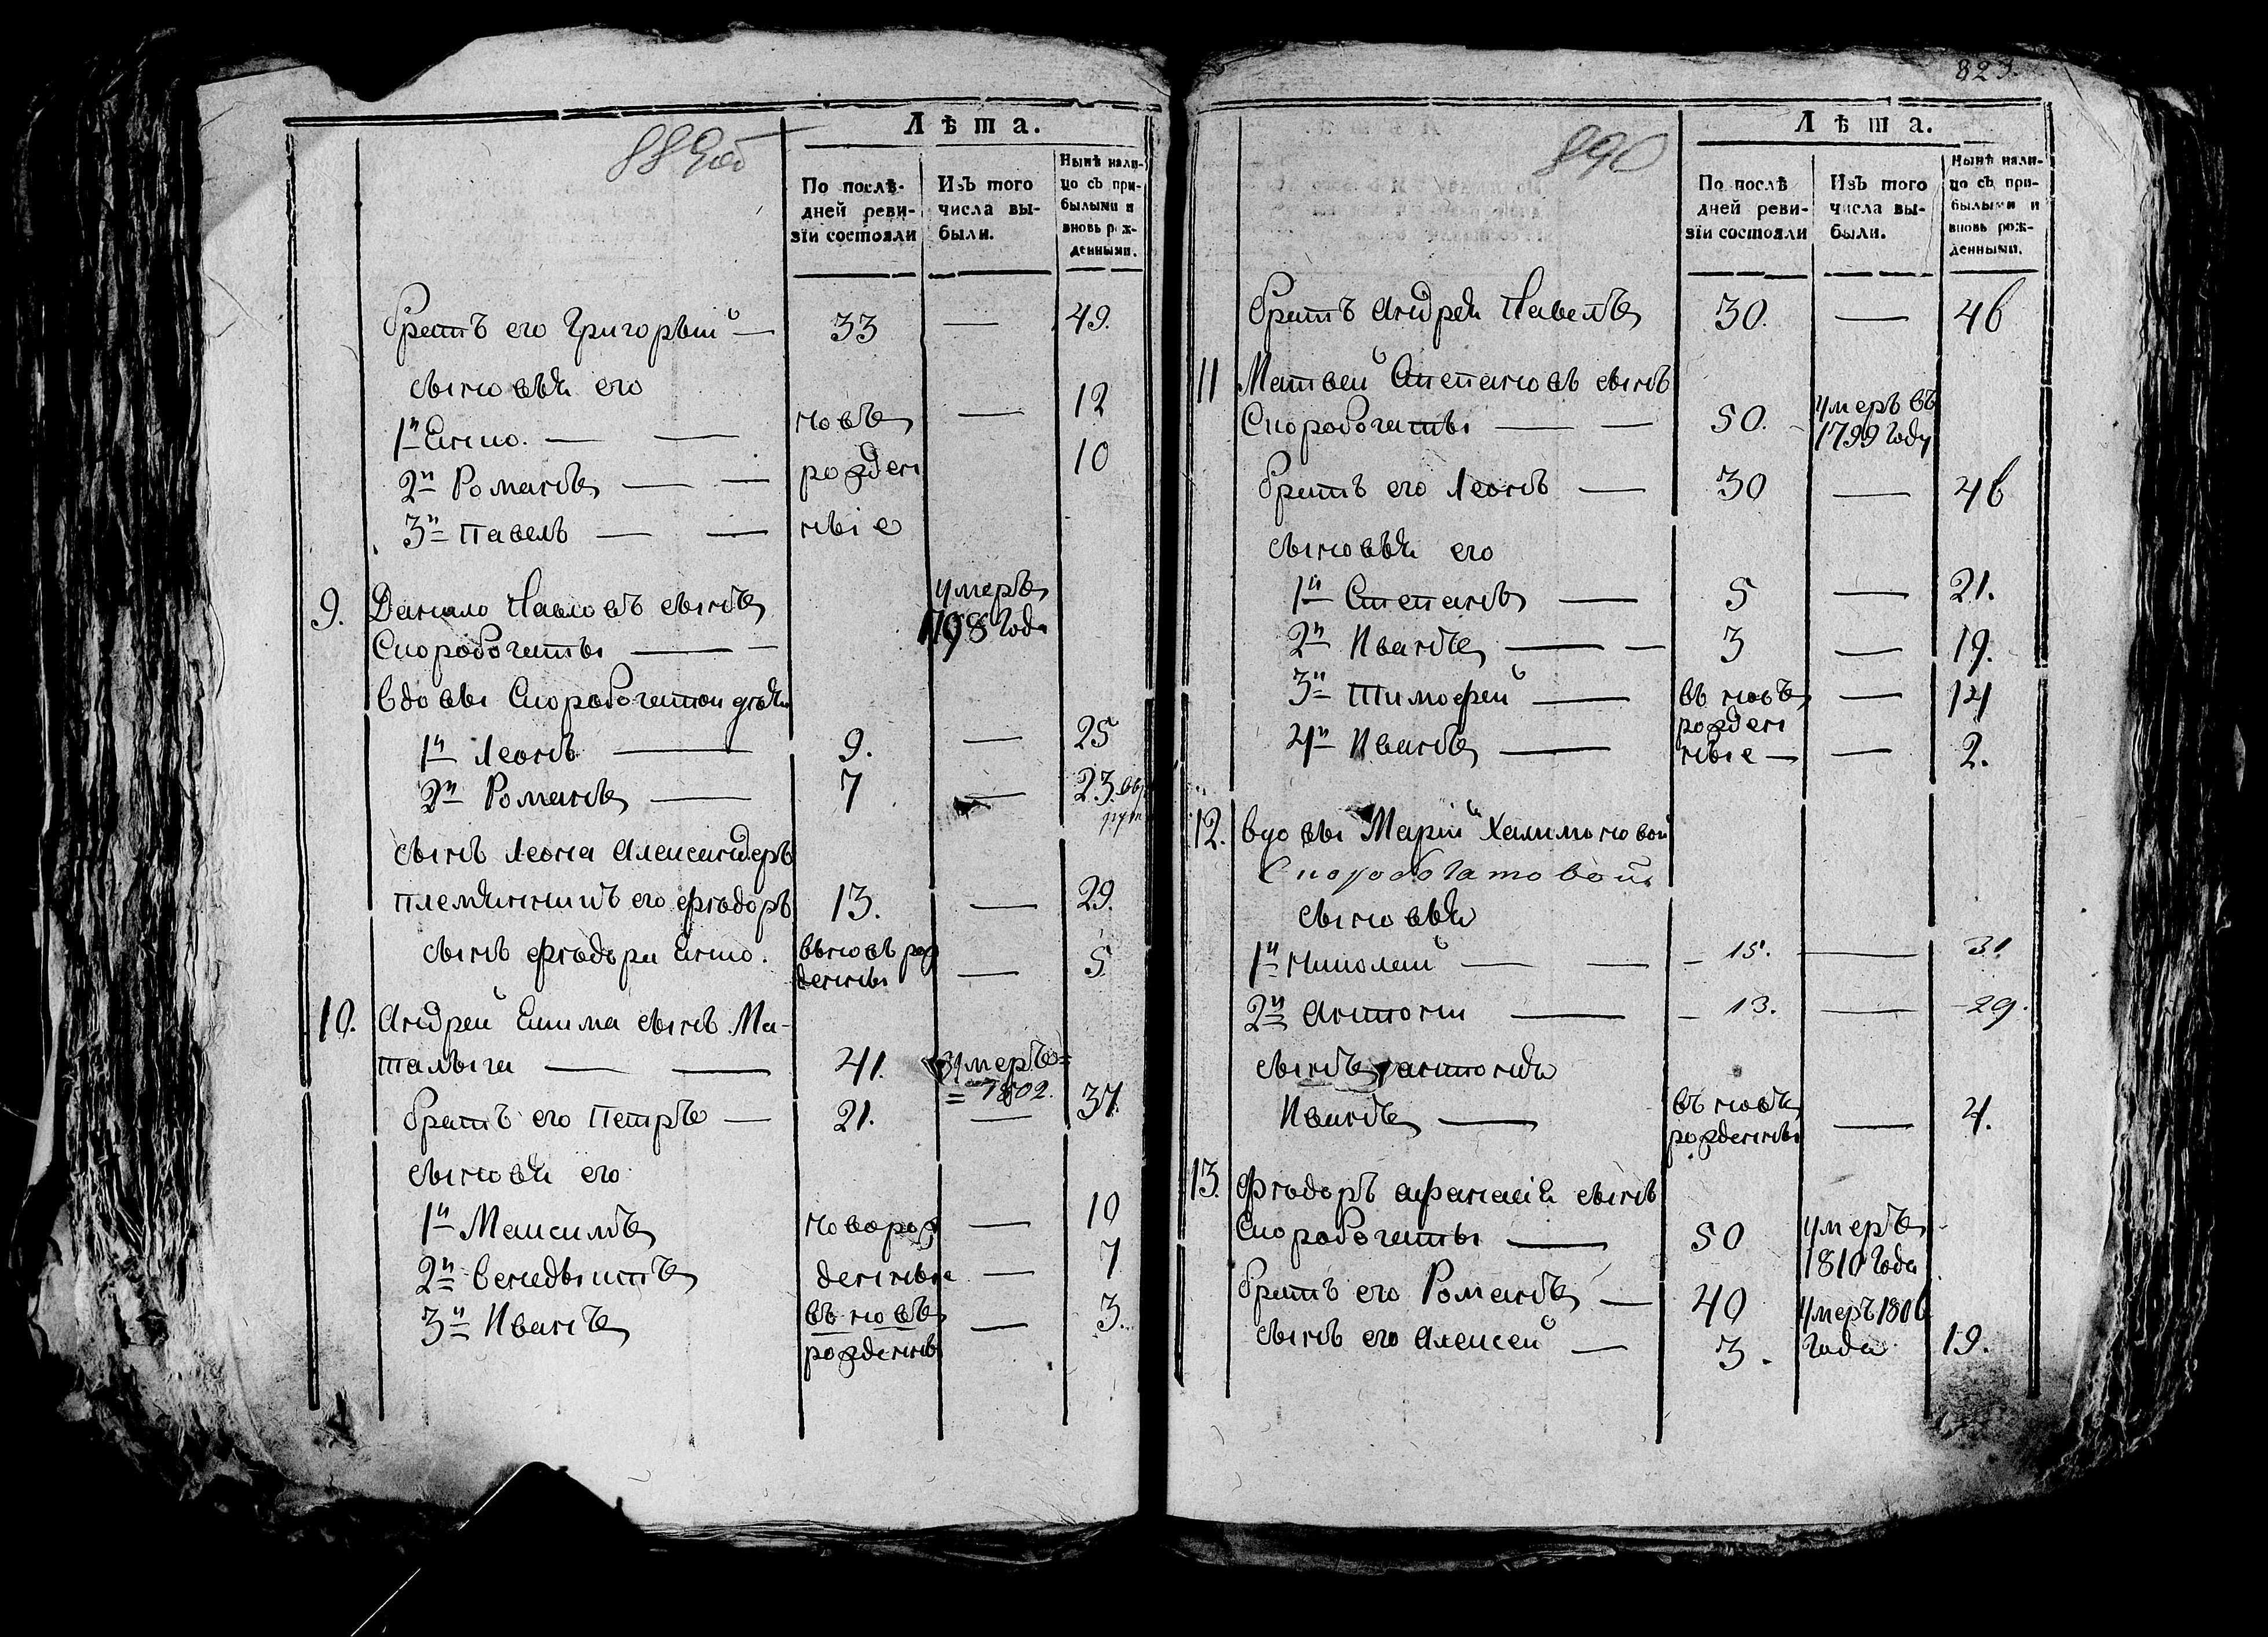 889об
Лѣта.
По послѣ-
дней реви-
зіи состояли
Изъ того
числа вы-
были.
Нынѣ нали-
цо съ при-
былыми и
вновь рож-
денными.
братъ его Григорѣий — 33 — 49.
сыновья его
1й Яско. — — новь — 12
2й Романъ — — рожден 10
3й Павелъ — — ные
9. Данило Павловъ сынъ умеръ
Скоробогаты — — 1798 Года
вдовы Скоробогатои дѣти
1й Леонъ — 9. — 25
2й Романъ — 7 — 23.
сынъ Леона Александеръ
племянникъ его Фѣодоръ 13. — 29.
сынъ Фѣодора Яско. вновь рож
денны — 5
10. Андрей Якима сынъ Ма-
талыга — — 41. умеръ=
= 1802.
братъ его Петръ — 21. — 37.
сыновя его
1й Максимъ новорож — 10
2й Бенедыктъ денные — 7
3й Иванъ въ новь — 3.
рожденны
823.
890
Лѣта.
По послѣ
дней реви-
зіи состояли
Изъ того
числа вы-
были.
Нынѣ нали-
цо съ при-
былыми и
вновь рож-
денными.
братъ Андрея Павелъ 30. — 46
11 Матвей Степановъ сынъ
Скоробогаты — — 50. умеръ въ
1799 Году
братъ его Леонъ — 30 — 46
сыновья его
1й Степанъ — 5 — 21.
2й Иванъ — — 3 — 19.
3й Тимофей — въ новь — 14
рожден
4й Иванъ — ные — — 2.
12. вдовы Марии Халимоновой
Скоробогатовой
сыновья
1й Николай — — 15. — 31
2й Антони — 13. — 29.
сынъ антония
Иванъ — въ новь
рожденны — 4.
13. Фѣодоръ афанасія сынъ
Скоробогаты — 50 умеръ
1810 Года
братъ его Романъ — 40 умеръ 1806
сынъ его Алексей — 3. Года 19.